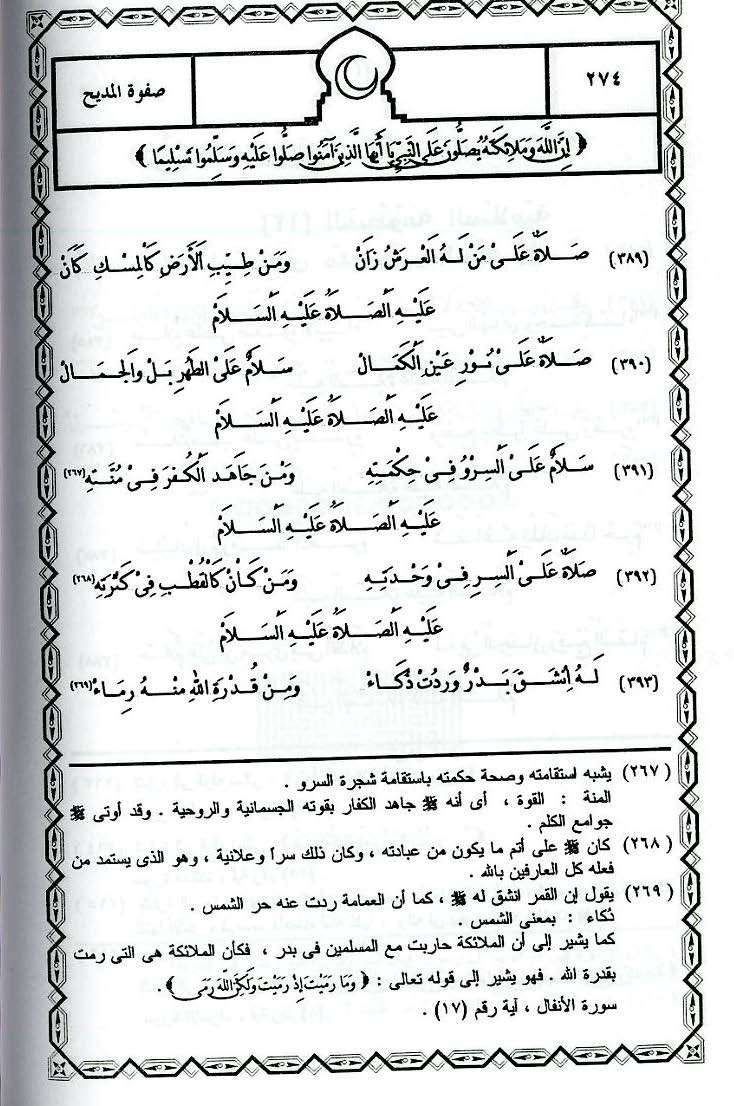 ٢٧٤
صفوة المديح
﴿ إِنَّ اللَّهَ وَمَلَائِكَتَهُ يُصَلُّونَ عَلَى النَّبِيِّ يَا أَيُّهَا الَّذِينَ آمَنُوا صَلُّوا عَلَيْهِ وَسَلِّمُوا تَسْلِيمًا ﴾
(٣٨٩) صَلَاةٌ عَلَىْ مَنْ لَهُ الْعَرْشُ زَانْ وَمَنْ طِيْبِ الْأَرْضِ كَالْمِسْكِ كَانْ
عَلَيْهِ الصَّلَاةُ عَلَيْهِ السَّلَامْ
(٣٩٠) صَلَاةٌ عَلَىْ نُوْرِ عَيْنِ الْكَمَالْ سَلَامٌ عَلَىْ الطُّهْرِ بَلْ وَالْجَمَالْ
عَلَيْهِ الصَّلَاةُ عَلَيْهِ السَّلَامْ
(٣٩١) سَلَامٌ عَلَىْ السِرْوُ فِىْ حِكْمَتِهِ وَمَنْ جَاهَدَ الْكُفْرَ فِىْ مُنَّتِهِ (٢٦٧)
عَلَيْهِ الصَّلَاةُ عَلَيْهِ السَّلَامْ
(٣٩٢) صَلَاةٌ عَلَىْ السِرِ فِىْ وَحْدَتِهِ وَمَنْ كَانْ كَالْقُطْبِ فِىْ كَثْرَتِهِ (٢٦٨)
عَلَيْهِ الصَّلَاةُ عَلَيْهِ السَّلَامْ
(٣٩٣) لَهُ اِنْشَقَ بَدْرٌ وَرَدْتْ ذُكَاءْ وَمِنْ قُدْرَةِ اللهِ مِنْهُ رِمَاءْ (٢٦٩)
(٢٦٧) يشبه استقامته وصحة حكمته باستقامة شجرة السرو .
المنة : القوة ، أى أنه ﷺ جاهد الكفار بقوته الجسمانية والروحية . وقد أوتى ﷺ
جوامع الكلم .
(٢٦٨) كان ﷺ على أتم ما يكون من عبادته ، وكان ذلك سراً وعلانية ، وهو الذى يستمد من
فعله كل العارفين بالله .
(٢٦٩) يقول إن القمر انشق له ﷺ ، كما أن العمامة ردت عنه حر الشمس .
ذكاء : بمعنى الشمس .
كما يشير إلى أن الملائكة حاربت مع المسلمين فى بدر ، فكأن الملائكة هى التى رمت
بقدرة الله . فهو يشير إلى قوله تعالى : ﴿ وَمَا رَمَيْتَ إِذْ رَمَيْتَ وَلَٰكِنَّ اللَّهَ رَمَى ﴾ .
سورة الأنفال ، آية رقم (١٧) .